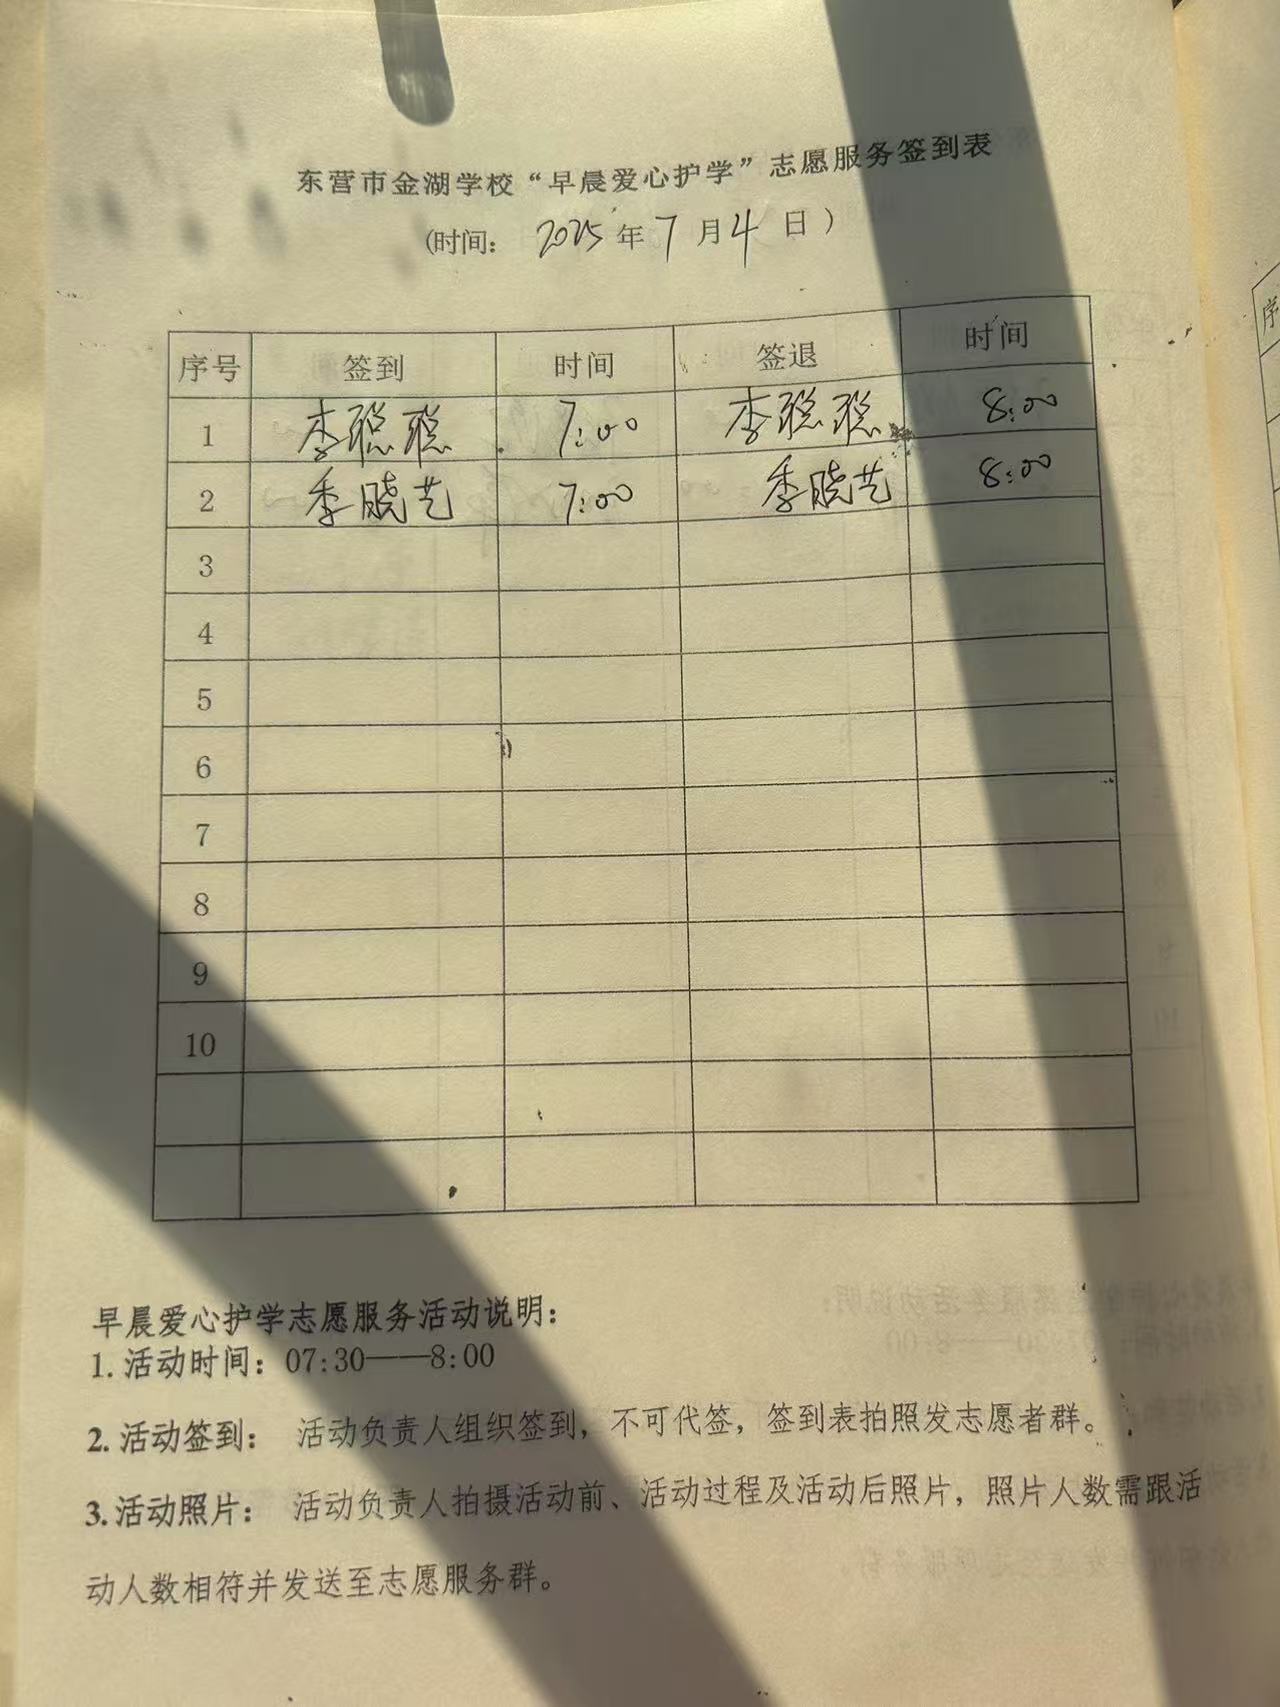 东营市金湖学校“早晨爱心护学”志愿服务签到表
(时间： 2025年7月4日）
序号 签到 时间 签退 时间
1 李聪聪 7:00 李聪聪 8:00
2 季晓艺 7:00 季晓艺 8:00
3
4
5
6
7
8
9
10
早晨爱心护学志愿服务活动说明：
1.活动时间：07:30——8:00
2.活动签到： 活动负责人组织签到，不可代签，签到表拍照发志愿者群。
3.活动照片： 活动负责人拍摄活动前、活动过程及活动后照片，照片人数需跟活
动人数相符并发送至志愿服务群。
序